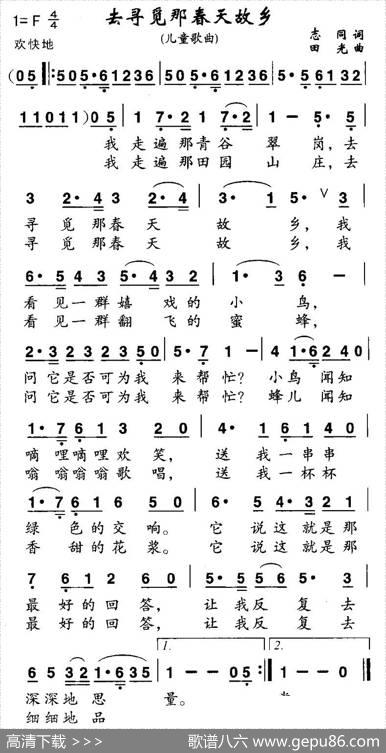 去寻觅那春天故乡
1=F 4/4
(儿童歌曲)
志同词
田光曲
欢快地
(05·|505·61236 505·61236|5·5·56132
11011)05|1 7·2 1 7·2|1 - 5· 5·
我走遍那青谷翠岗,去
我走遍那田园山庄,去
3 2·4 3 2·4|3· 1 5· ∨ 3
寻觅那春天故乡,我
寻觅那春天故乡,我
6· 5 4 3 5·4 3 2|1· 3 6 -
看见一群嬉戏的小鸟,
看见一群翻飞的蜜蜂,
2·3 2323236|5·5· 1 -|4 1·6 2 4 0
问它是否可为我来帮忙?小鸟闻知
问它是否可为我来帮忙?蜂儿闻知
1·7 6 1 2 3 0|4· 5 4·3 2 1
嘀哩嘀哩欢笑,送我一串串
嗡嗡嗡嗡歌唱,送我一杯杯
1·7 6 1 6 5 0|6· 5 5 4·3 2 1
绿色的交响。它说这就是那
香甜的花浆。它说这就是那
7 6 1 2 0|5·5 5 6 5· 3
最好的回答,让我反复去
最好的回答,让我反复去
1. 2.
6 5 3 2 1·6 3 5|1 - - 05:|1 - - 0
深深地思量。
细细地品
高清下载 >>> 歌谱八六 www.gepu86.com